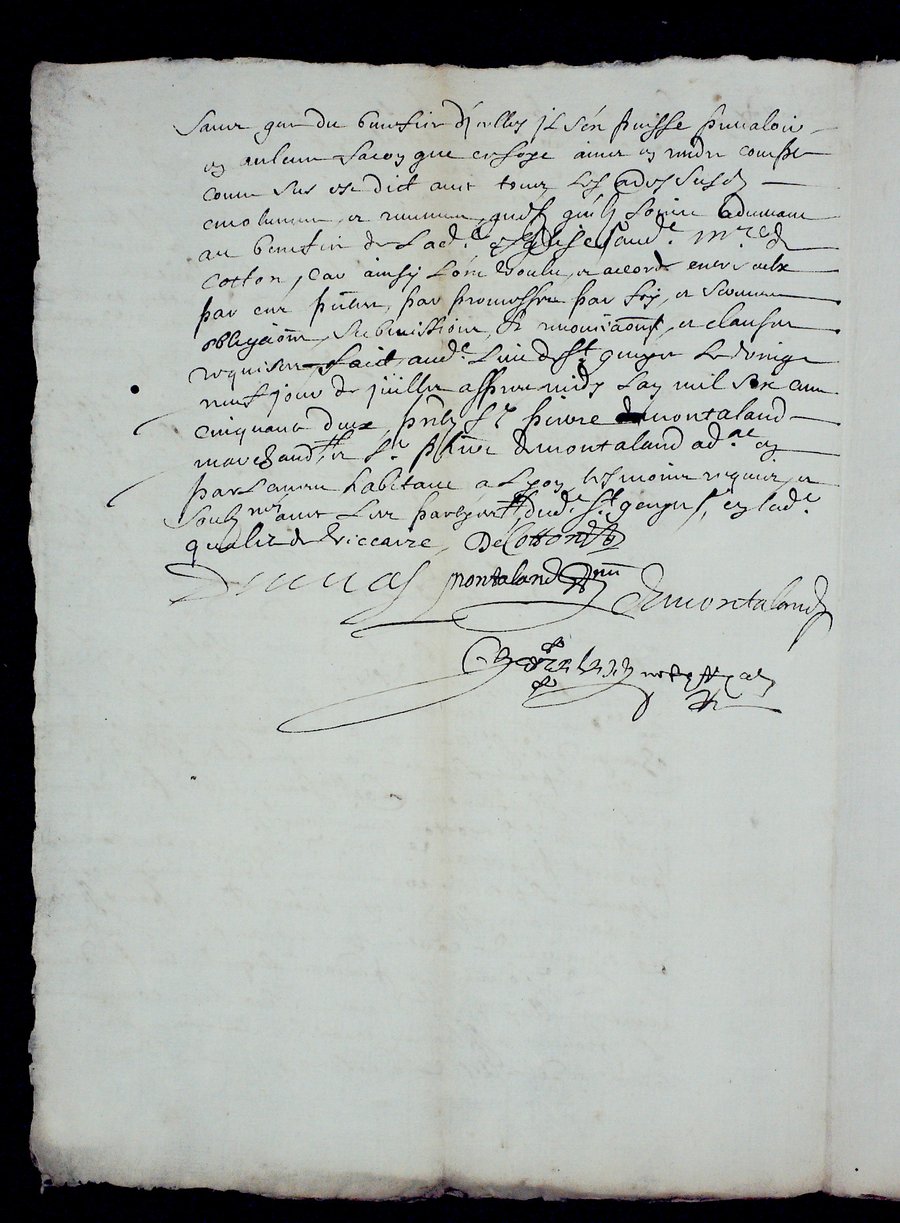 sans que du benefice d'icelles il s'en puisse prevaloir
en aulcune facon que ce soye ains en rendre compte
comme sus est dict avec tous les ad. susd.
emolumens et revenus quels qu'ils soient advenant
au benefice de lad. esglise aud. Mre de
Cotton, car ainsy l'ont voulu et accordé entre eulx
par cest pnte, par promesses par foy et serment
obligaons, submissions, renonciaons, et clauses
requises fait aud. lieu de St genyes le vingt
neuf jour de juillet appres midy l'an mil six cens
cinquante deux, pnts Sr pierre demontaland
marchand, et Sr pierre demontaland ad.at en
parlement habitant a Lyon tesmoins requis et
soubznes avec les partyes, dud. St genyes, en lad.
qualité de viccaire, DeCotton
Dumas montaland demontaland